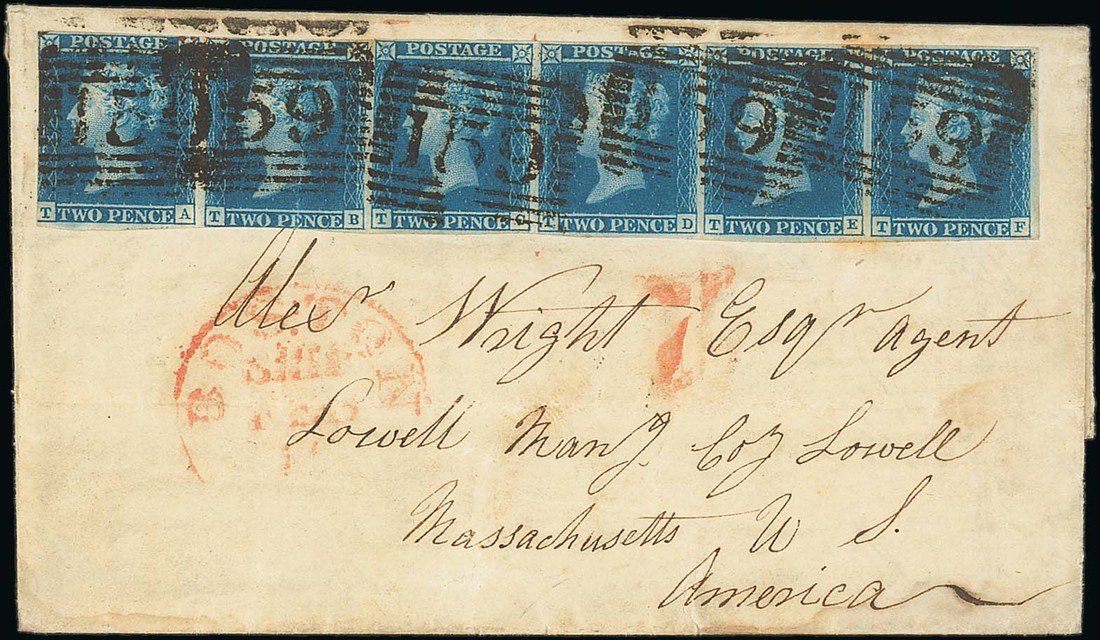 POSTAGE POSTAGE POSTAGE POSTAGE POSTAGE POSTAGE
159 159 159
T TWO PENCE A T TWO PENCE B T TWO PENCE C T TWO PENCE D T TWO PENCE E T TWO PENCE F
Alexr Wright Esqr agent
Lowell Manf. Coy Lowell
Massachusetts U S.
America
BOSTON
SHIP